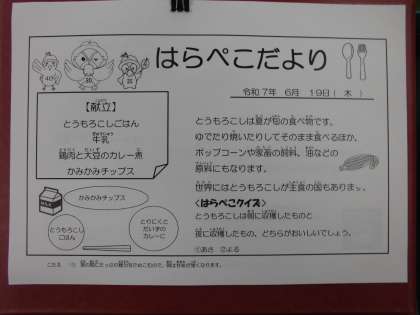 はらぺこだより
令和7年 6月 19日( 木 )
【献立】
とうもろこしごはん
牛乳
鶏肉と大豆のカレー煮
かみかみチップス
かみかみチップス
とうもろこし
ごはん
とりにくと
だいずの
カレーに
とうもろこしは夏が旬の食べ物です。
ゆでたり焼いたりしてそのまま食べるほか、
ポップコーンや家畜の飼料、油などの
原料にもなります。
世界にはとうもろこしが主食の国もあります。
<はらぺこクイズ>
とうもろこしは朝に収穫したものと
夜に収穫したもの、どちらがおいしいでしょう。
①あさ ②よる